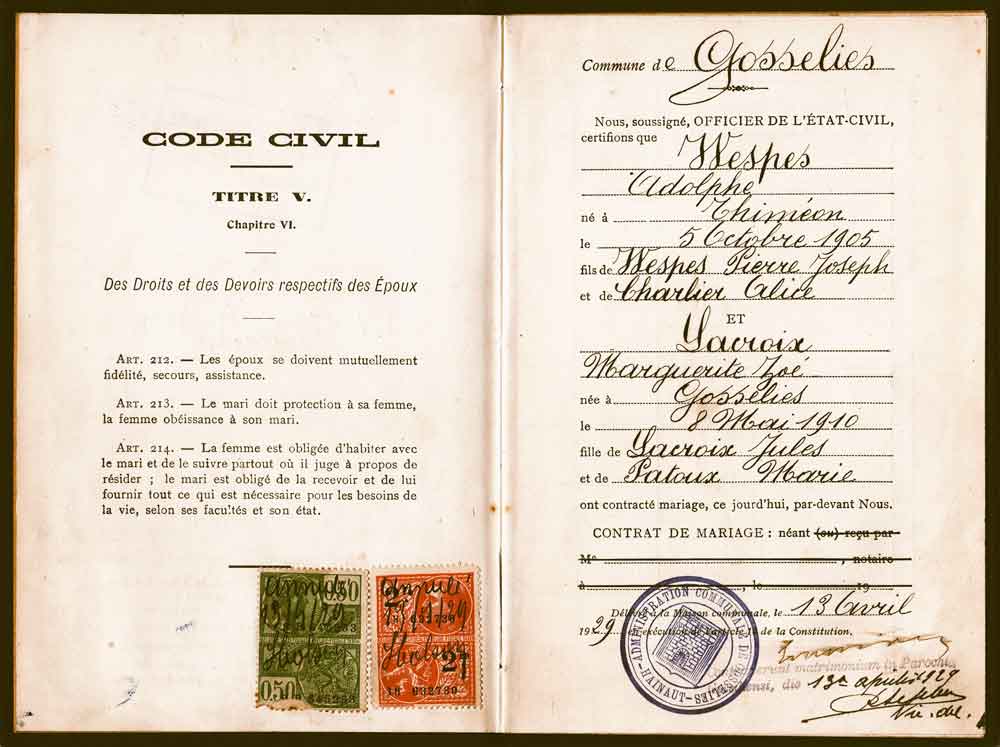 CODE CIVIL
TITRE V.
Chapitre VI.
Des Droits et des Devoirs respectifs des Époux
ART. 212. — Les époux se doivent mutuellement
fidélité, secours, assistance.
ART. 213. — Le mari doit protection à sa femme,
la femme obéissance à son mari.
ART. 214. — La femme est obligée d'habiter avec
le mari et de le suivre partout où il juge à propos de
résider ; le mari est obligé de la recevoir et de lui
fournir tout ce qui est nécessaire pour les besoins de
la vie, selon ses facultés et son état.
Annulé
0.50
Annulé
18 932730
Commune de Gosselies
Nous, soussigné, OFFICIER DE L'ÉTAT-CIVIL,
certifions que Wespes
Adolphe
né à Thiméon
le 5 Octobre 1905
fils de Wespes Pierre Joseph
et de Charlier Alice
ET
Lacroix
Marguerite Zoé
née à Gosselies
le 8 Mai 1910
fille de Lacroix Jules
et de Patoux Marie
ont contracté mariage, ce jourd'hui, par-devant Nous.
CONTRAT DE MARIAGE : néant (ou) reçu par
Me , notaire
à , le 19
Délivré à la Maison communale, le 13 Avril
1929 en exécution de l'article 16 de la Constitution.
ADMINISTRATION COMMUNALE DE GOSSELIES
HAINAUT
matrimonium in Parochia
die 13a aprilis 1929
Vic. del.